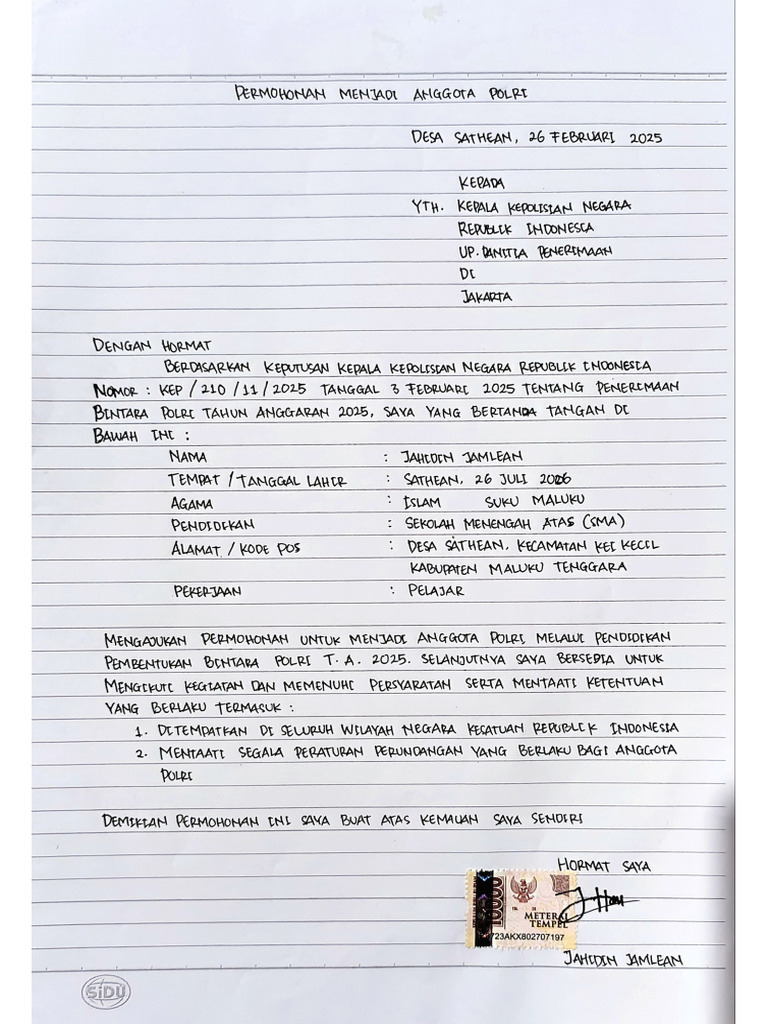 PERMOHONAN MENJADI ANGGOTA POLRI
DESA SATHEAN, 26 FEBRUARI 2025
KEPADA
YTH. KEPALA KEPOLISIAN NEGARA
REPUBLIK INDONESIA
UP. PANITIA PENERIMAAN
DI
JAKARTA
DENGAN HORMAT
BERDASARKAN KEPUTUSAN KEPALA KEPOLISIAN NEGARA REPUBLIK INDONESIA
NOMOR : KEP / 210 / 11 / 2025 TANGGAL 3 FEBRUARI 2025 TENTANG PENERIMAAN
BINTARA POLRI TAHUN ANGGARAN 2025, SAYA YANG BERTANDA TANGAN DI
BAWAH INI :
NAMA : JAHIDIN JAMLEAN
TEMPAT / TANGGAL LAHIR : SATHEAN, 26 JULI 2006
AGAMA : ISLAM SUKU MALUKU
PENDIDIKAN : SEKOLAH MENENGAH ATAS (SMA)
ALAMAT / KODE POS : DESA SATHEAN, KECAMATAN KEI KECIL
KABUPATEN MALUKU TENGGARA
PEKERJAAN : PELAJAR
MENGAJUKAN PERMOHONAN UNTUK MENJADI ANGGOTA POLRI MELALUI PENDIDIKAN
PEMBENTUKAN BINTARA POLRI T. A. 2025. SELANJUTNYA SAYA BERSEDIA UNTUK
MENGIKUTI KEGIATAN DAN MEMENUHI PERSYARATAN SERTA MENTAATI KETENTUAN
YANG BERLAKU TERMASUK :
1. DITEMPATKAN DI SELURUH WILAYAH NEGARA KESATUAN REPUBLIK INDONESIA
2. MENTAATI SEGALA PERATURAN PERUNDANGAN YANG BERLAKU BAGI ANGGOTA
POLRI
DEMIKIAN PERMOHONAN INI SAYA BUAT ATAS KEMAUAN SAYA SENDIRI
HORMAT SAYA
10000
METERAI
TEMPEL
723AKX802707197
JAHIDIN JAMLEAN
SiDU